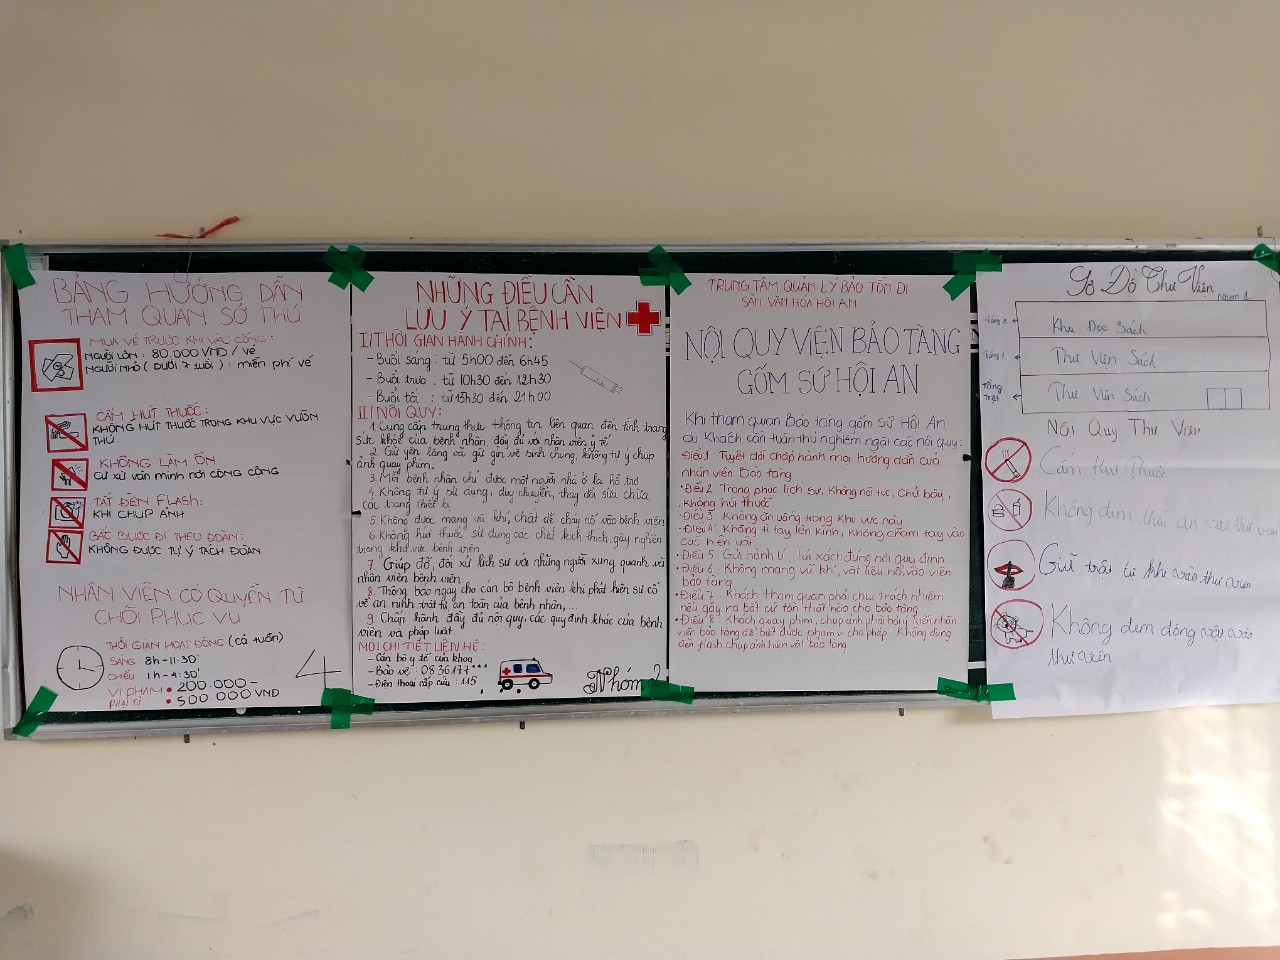 BẢNG HƯỚNG DẪN
THAM QUAN SỞ THÚ
MUA VÉ TRƯỚC KHI VÀO CỔNG:
NGƯỜI LỚN : 80.000 VND / vé
NGƯỜI NHỎ ( DƯỚI 7 tuổi ) : miễn phí vé
CẤM HÚT THUỐC:
KHÔNG HÚT THUỐC TRONG KHU VỰC VƯỜN
THÚ.
KHÔNG LÀM ỒN
CƯ XỬ VĂN MINH NƠI CÔNG CỘNG
TẮT ĐÈN FLASH:
KHI CHỤP ẢNH
BẮT BUỘC ĐI THEO ĐOÀN:
KHÔNG ĐƯỢC TỰ Ý TÁCH ĐOÀN
NHÂN VIÊN CÓ QUYỀN TỪ
CHỐI PHỤC VỤ
THỜI GIAN HOẠT ĐỘNG (cả tuần)
SÁNG 8h-11:30'
CHIỀU 1h-4:30'
VI PHẠM • 200.000-
PHẠT TỪ • 500 000 VND
4
NHỮNG ĐIỀU CẦN
LƯU Ý TẠI BỆNH VIỆN
I/ THỜI GIAN HÀNH CHÍNH:
- Buổi sáng: từ 5h00 đến 6h45
- Buổi trưa : từ 10h30 đến 12h30
- Buổi tối : từ 15h30 đến 21h00
II/ NỘI QUY:
1. Cung cấp trung thực thông tin liên quan đến tình trạng
sức khỏe của bệnh nhân, đầy đủ với nhân viên y tế
2. Giữ yên lặng và giữ gìn vệ sinh chung, không tự ý chụp
ảnh quay phim.
3. Mỗi bệnh nhân chỉ được một người nhà ở lại hỗ trợ
4. Không tự ý sử dụng, duy chuyển, thay đổi sửa chữa
các trang thiết bị
5. Không được mang vũ khí, chất dễ cháy nổ vào bệnh viện
6. Không hút thuốc sử dụng các chất kích thích, gây nghiện
trong khu vực bệnh viện
7. Giúp đỡ, đối xử lịch sự với những người xung quanh và
nhân viên bệnh viện
8. Thông báo ngay cho cán bộ bệnh viện khi phát hiện sự cố
về an ninh trật tự an toàn của bệnh nhân,...
9. Chấp hành đầy đủ nội quy, các quy định khác của bệnh
viện và pháp luật.
MỌI CHI TIẾT LIÊN HỆ:
- Cán bộ y tế của khoa
- Bảo vệ : 0836177***
- Điện thoại cấp cứu : 115
Nhóm 2
TRUNG TÂM QUẢN LÝ BẢO TỒN DI
SẢN VĂN HÓA HỘI AN
NỘI QUY VIỆN BẢO TÀNG
GỐM SỨ HỘI AN
Khi tham quan Bảo tàng gốm sứ Hội An
du Khách cần tuân thủ nghiêm ngặt các nội quy:
Điều 1 Tuyệt đối chấp hành mọi hướng dẫn của
nhân viên Bảo tàng
• Điều 2 Trang phục lịch sự, Không nói tục, Chửi bậy,
không hút thuốc
• Điều 3 Không ăn uống trong khu vực này
• Điều 4 Không tì tay lên kính, không chạm tay vào
các hiện vật
• Điều 5: Gửi hành lí, túi xách đúng nơi quy định
• Điều 6 : Không mang vũ khí, vật liệu nổ vào viện
bảo tàng
• Điều 7 Khách tham quan phải chịu trách nhiệm
nếu gây ra bất cứ tổn thất nào cho bảo tàng
• Điều 8 Khách quay phim, chụp ảnh phải hỏi ý kiến nhân
viên bảo tàng để biết được phạm vi cho phép Không dùng
đèn flash chụp ảnh hiện vật bảo tàng
Sơ Đồ Thư Viện
Nhóm 1
Tầng 2
Khu Đọc Sách
Tầng 1
Thư Viện Sách
Tầng trệt
Thư Viện Sách
Nội Quy Thư Viện
Cấm Hút Thuốc
Không đem thức ăn vào thư viện
Giữ trật tự khi vào thư viện
Không đem động vật vào
thư viện